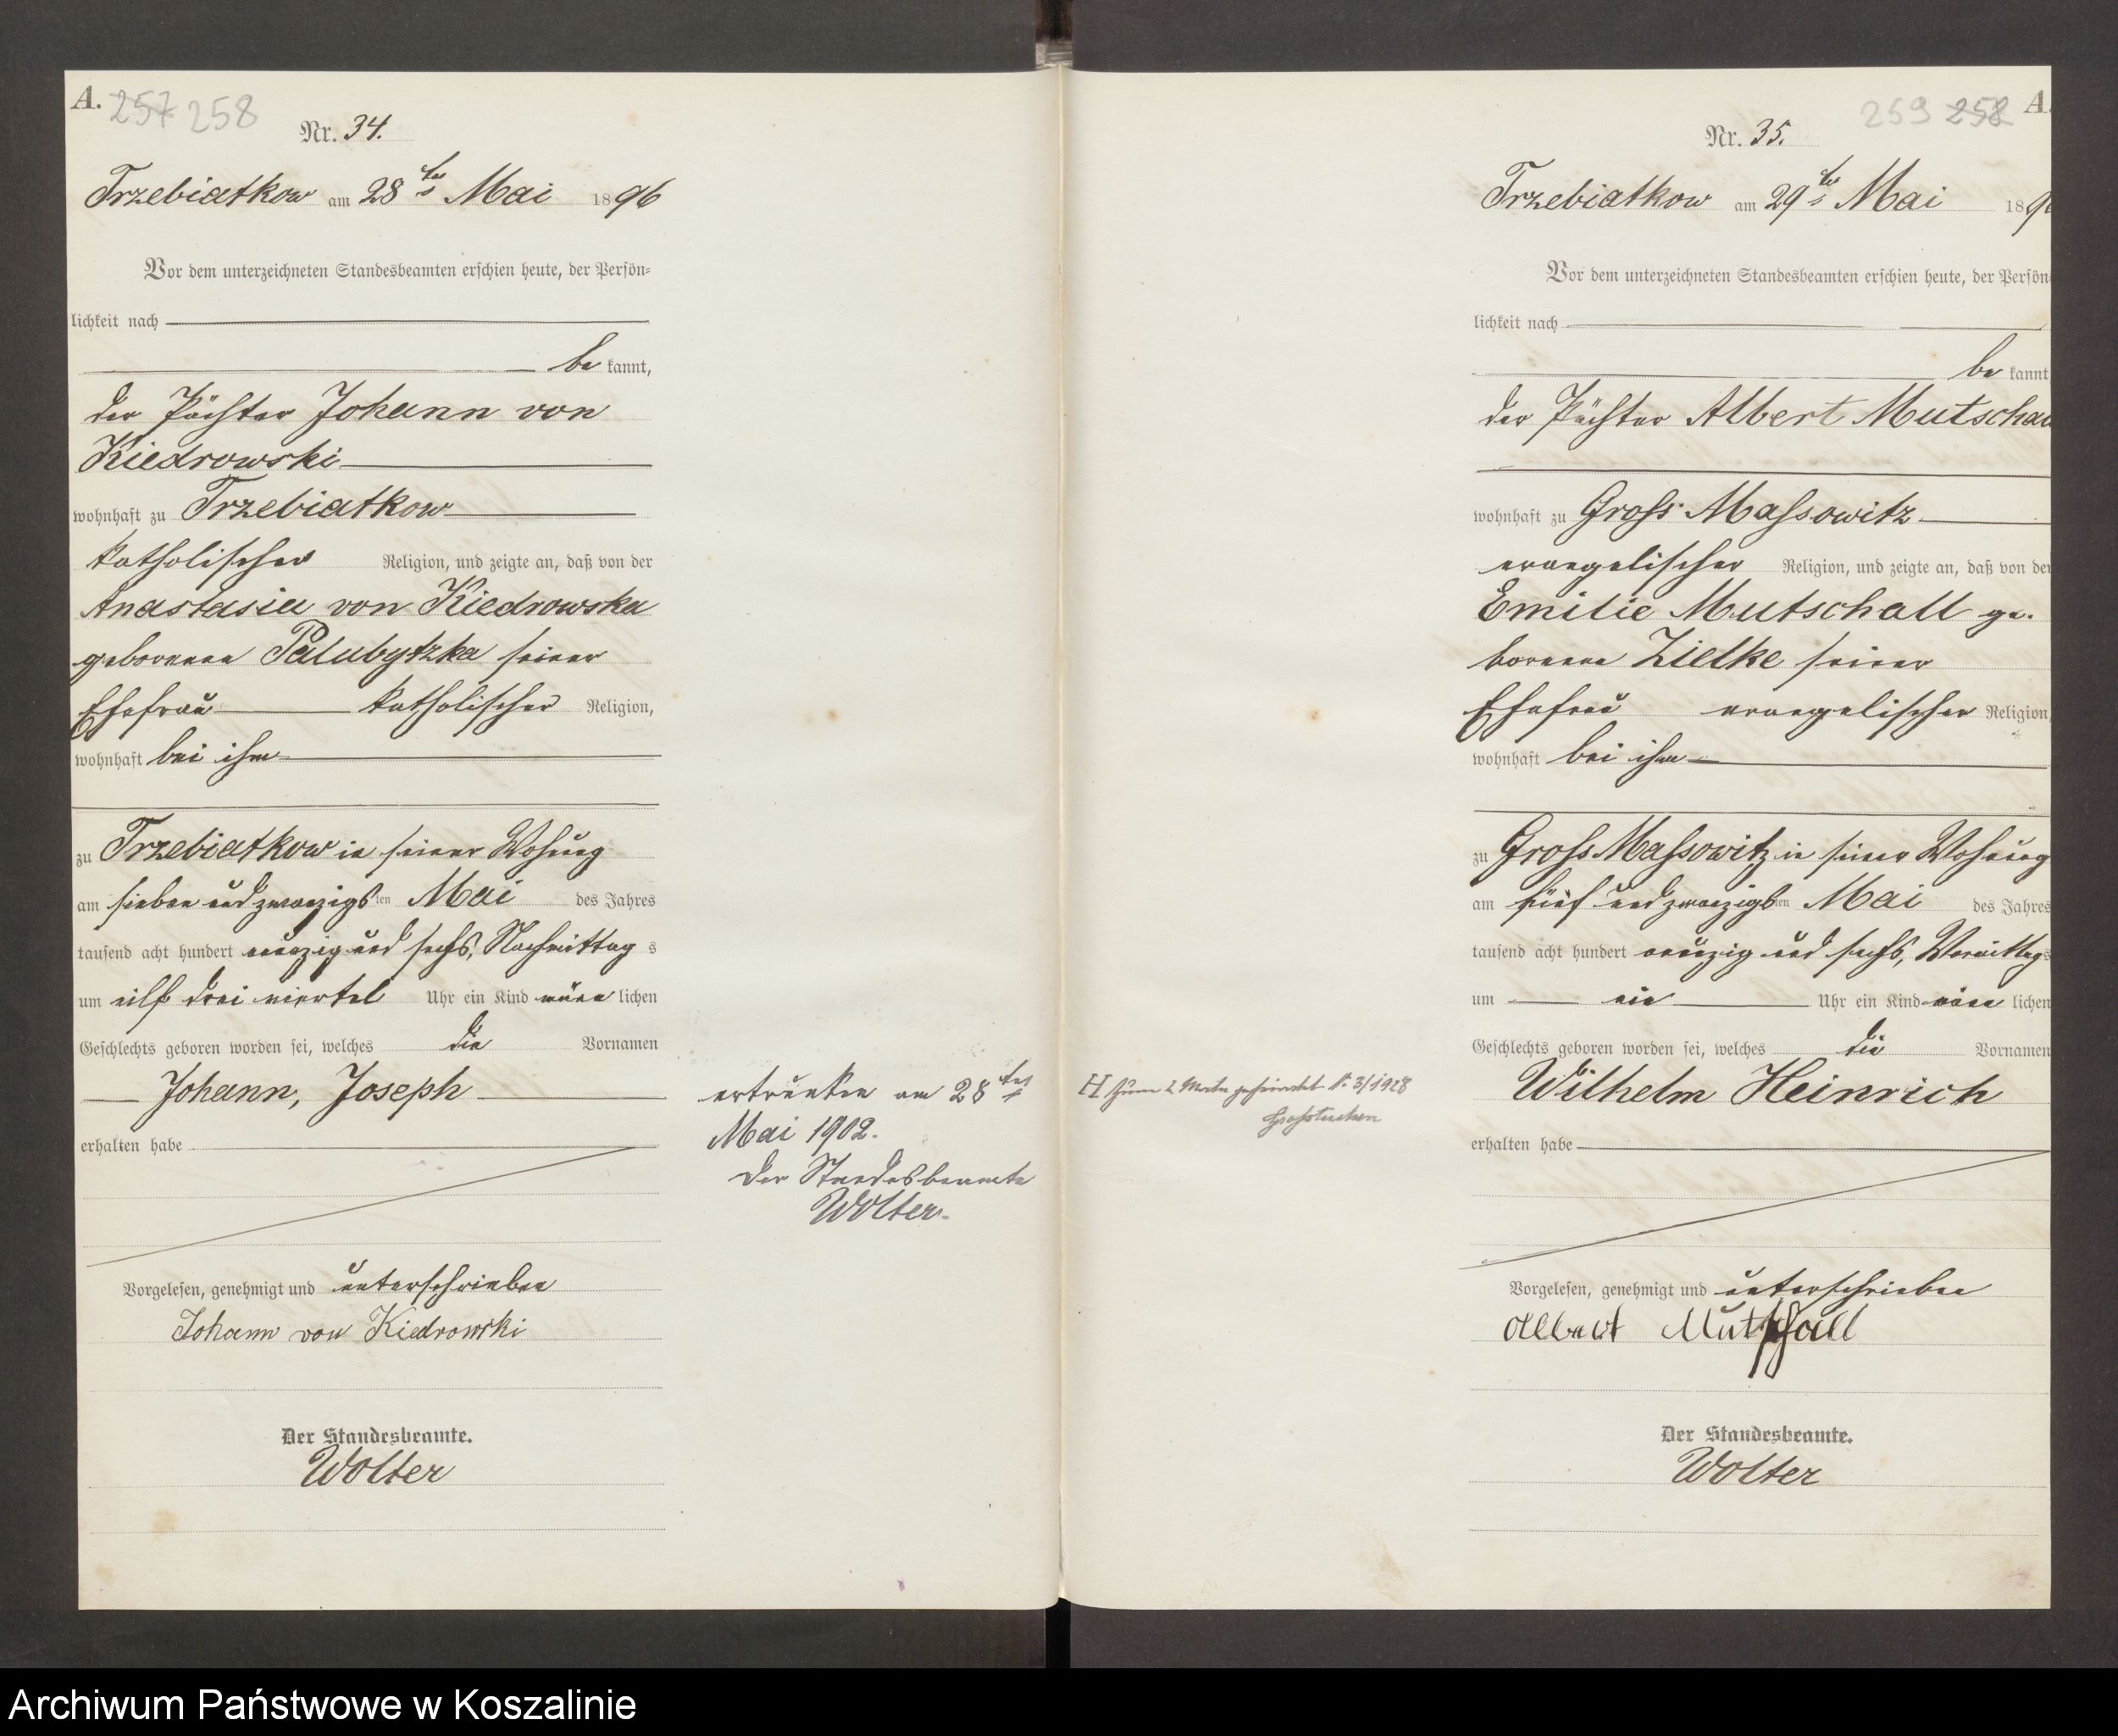 A. 257 258
Nr. 34.
Trzebiatkow am 28ten Mai 1896
Vor dem unterzeichneten Standesbeamten erschien heute, der Persön=
lichkeit nach
be kannt,
der Pächter Johann von
Kiedrowski
wohnhaft zu Trzebiatkow
katholischer Religion, und zeigte an, daß von der
Anastasia von Kiedrowska
geborenen Palubytzka seiner
Ehefrau katholischer Religion,
wohnhaft bei ihm
zu Trzebiatkow in seiner Wohnung
am sieben und zwanzigsten Mai des Jahres
tausend acht hundert neunzig und sechs, Nachmittag s
um eilf drei viertel Uhr ein Kind männ lichen
Geschlechts geboren worden sei, welches die Vornamen
Johann, Joseph
erhalten habe
Vorgelesen, genehmigt und unterschrieben
Johann von Kiedrowski
Der Standesbeamte.
Wolter
ertrunken am 28ten
Mai 1902.
Der Standesbeamte
Wolter.
259 258 A.
Nr. 35.
Trzebiatkow am 29ten Mai 189
Vor dem unterzeichneten Standesbeamten erschien heute, der Persön
lichkeit nach
be kannt
der Pächter Albert Mutschall
wohnhaft zu Gross Massowitz
evangelischer Religion, und zeigte an, daß von der
Emilie Mutschall ge-
borenen Zielke seiner
Ehefrau evangelischer Religion,
wohnhaft bei ihm
zu Gross Massowitz in seiner Wohnung
am fünf und zwanzigsten Mai des Jahres
tausend acht hundert neunzig und sechs, Vormittags
um ein Uhr ein Kind männ lichen
Geschlechts geboren worden sei, welches die Vornamen
Wilhelm Heinrich
erhalten habe
Vorgelesen, genehmigt und unterschrieben
Albert Mutschall
Der Standesbeamte.
Wolter
H zum 2 Male geheiratet N. 3/1928
Grosstuchen
Archiwum Państwowe w Koszalinie